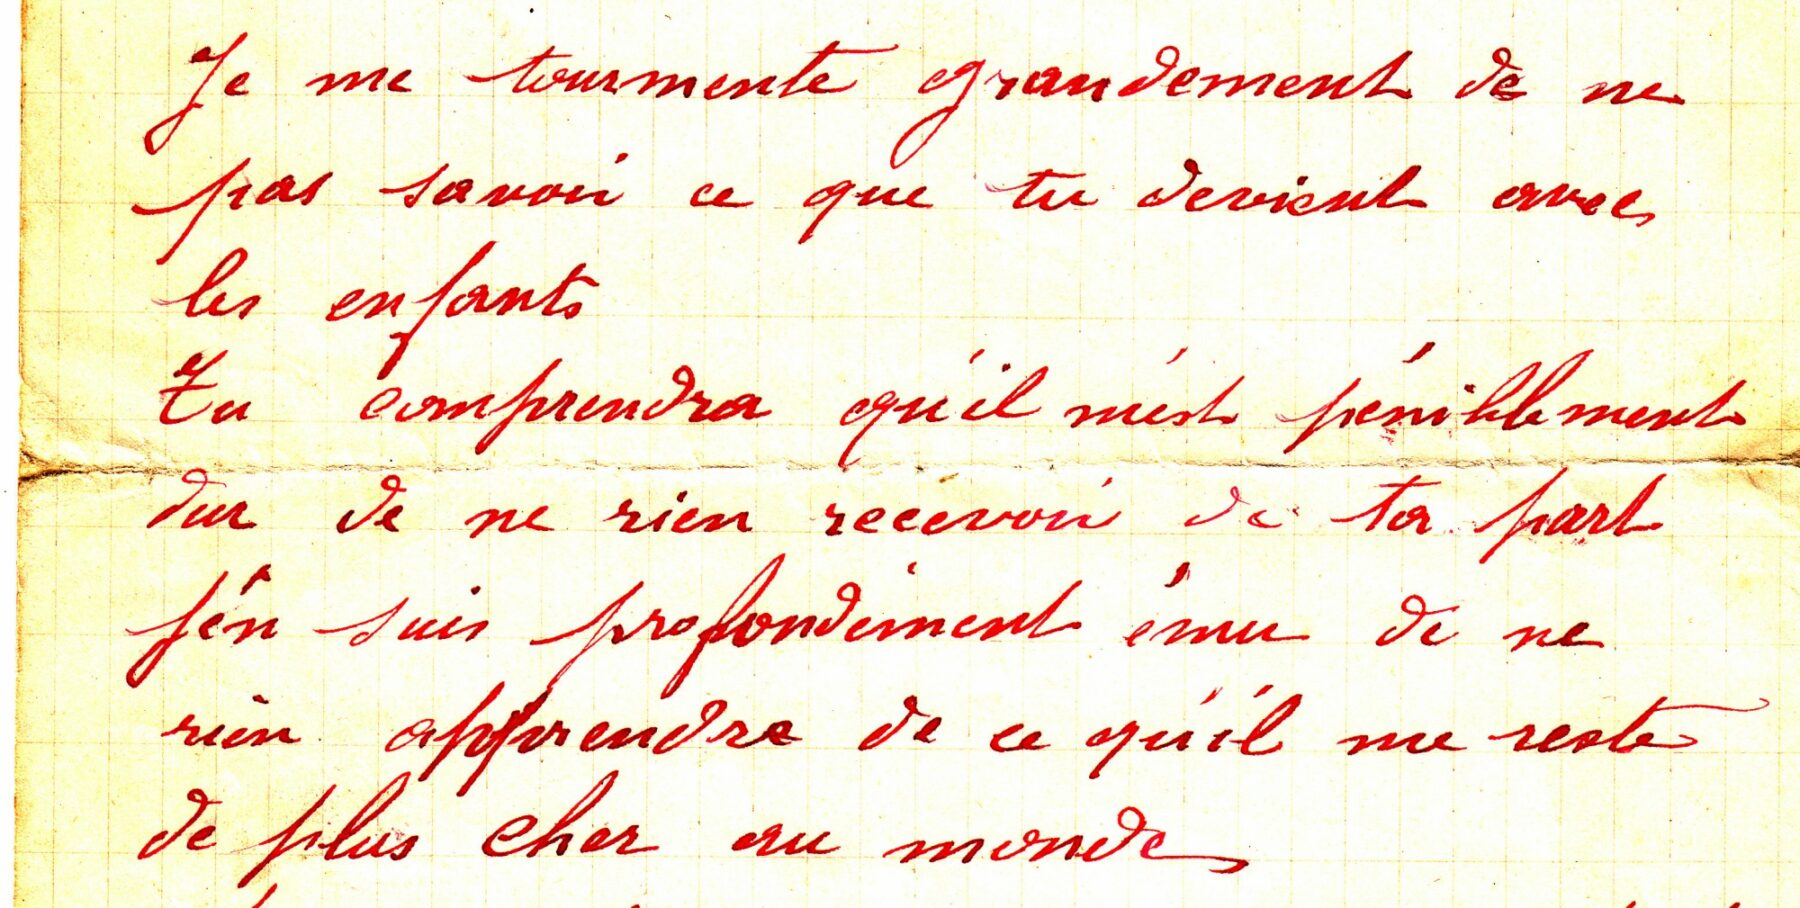 Je me tourmente grandement de ne
pas savoir ce que tu devient avec
les enfants
Tu comprendra qu'il m'est péniblement
dur de ne rien recevoir de ta part
j'én suis profondément ému de ne
rien apprendre de ce qu'il me reste
de plus cher au monde